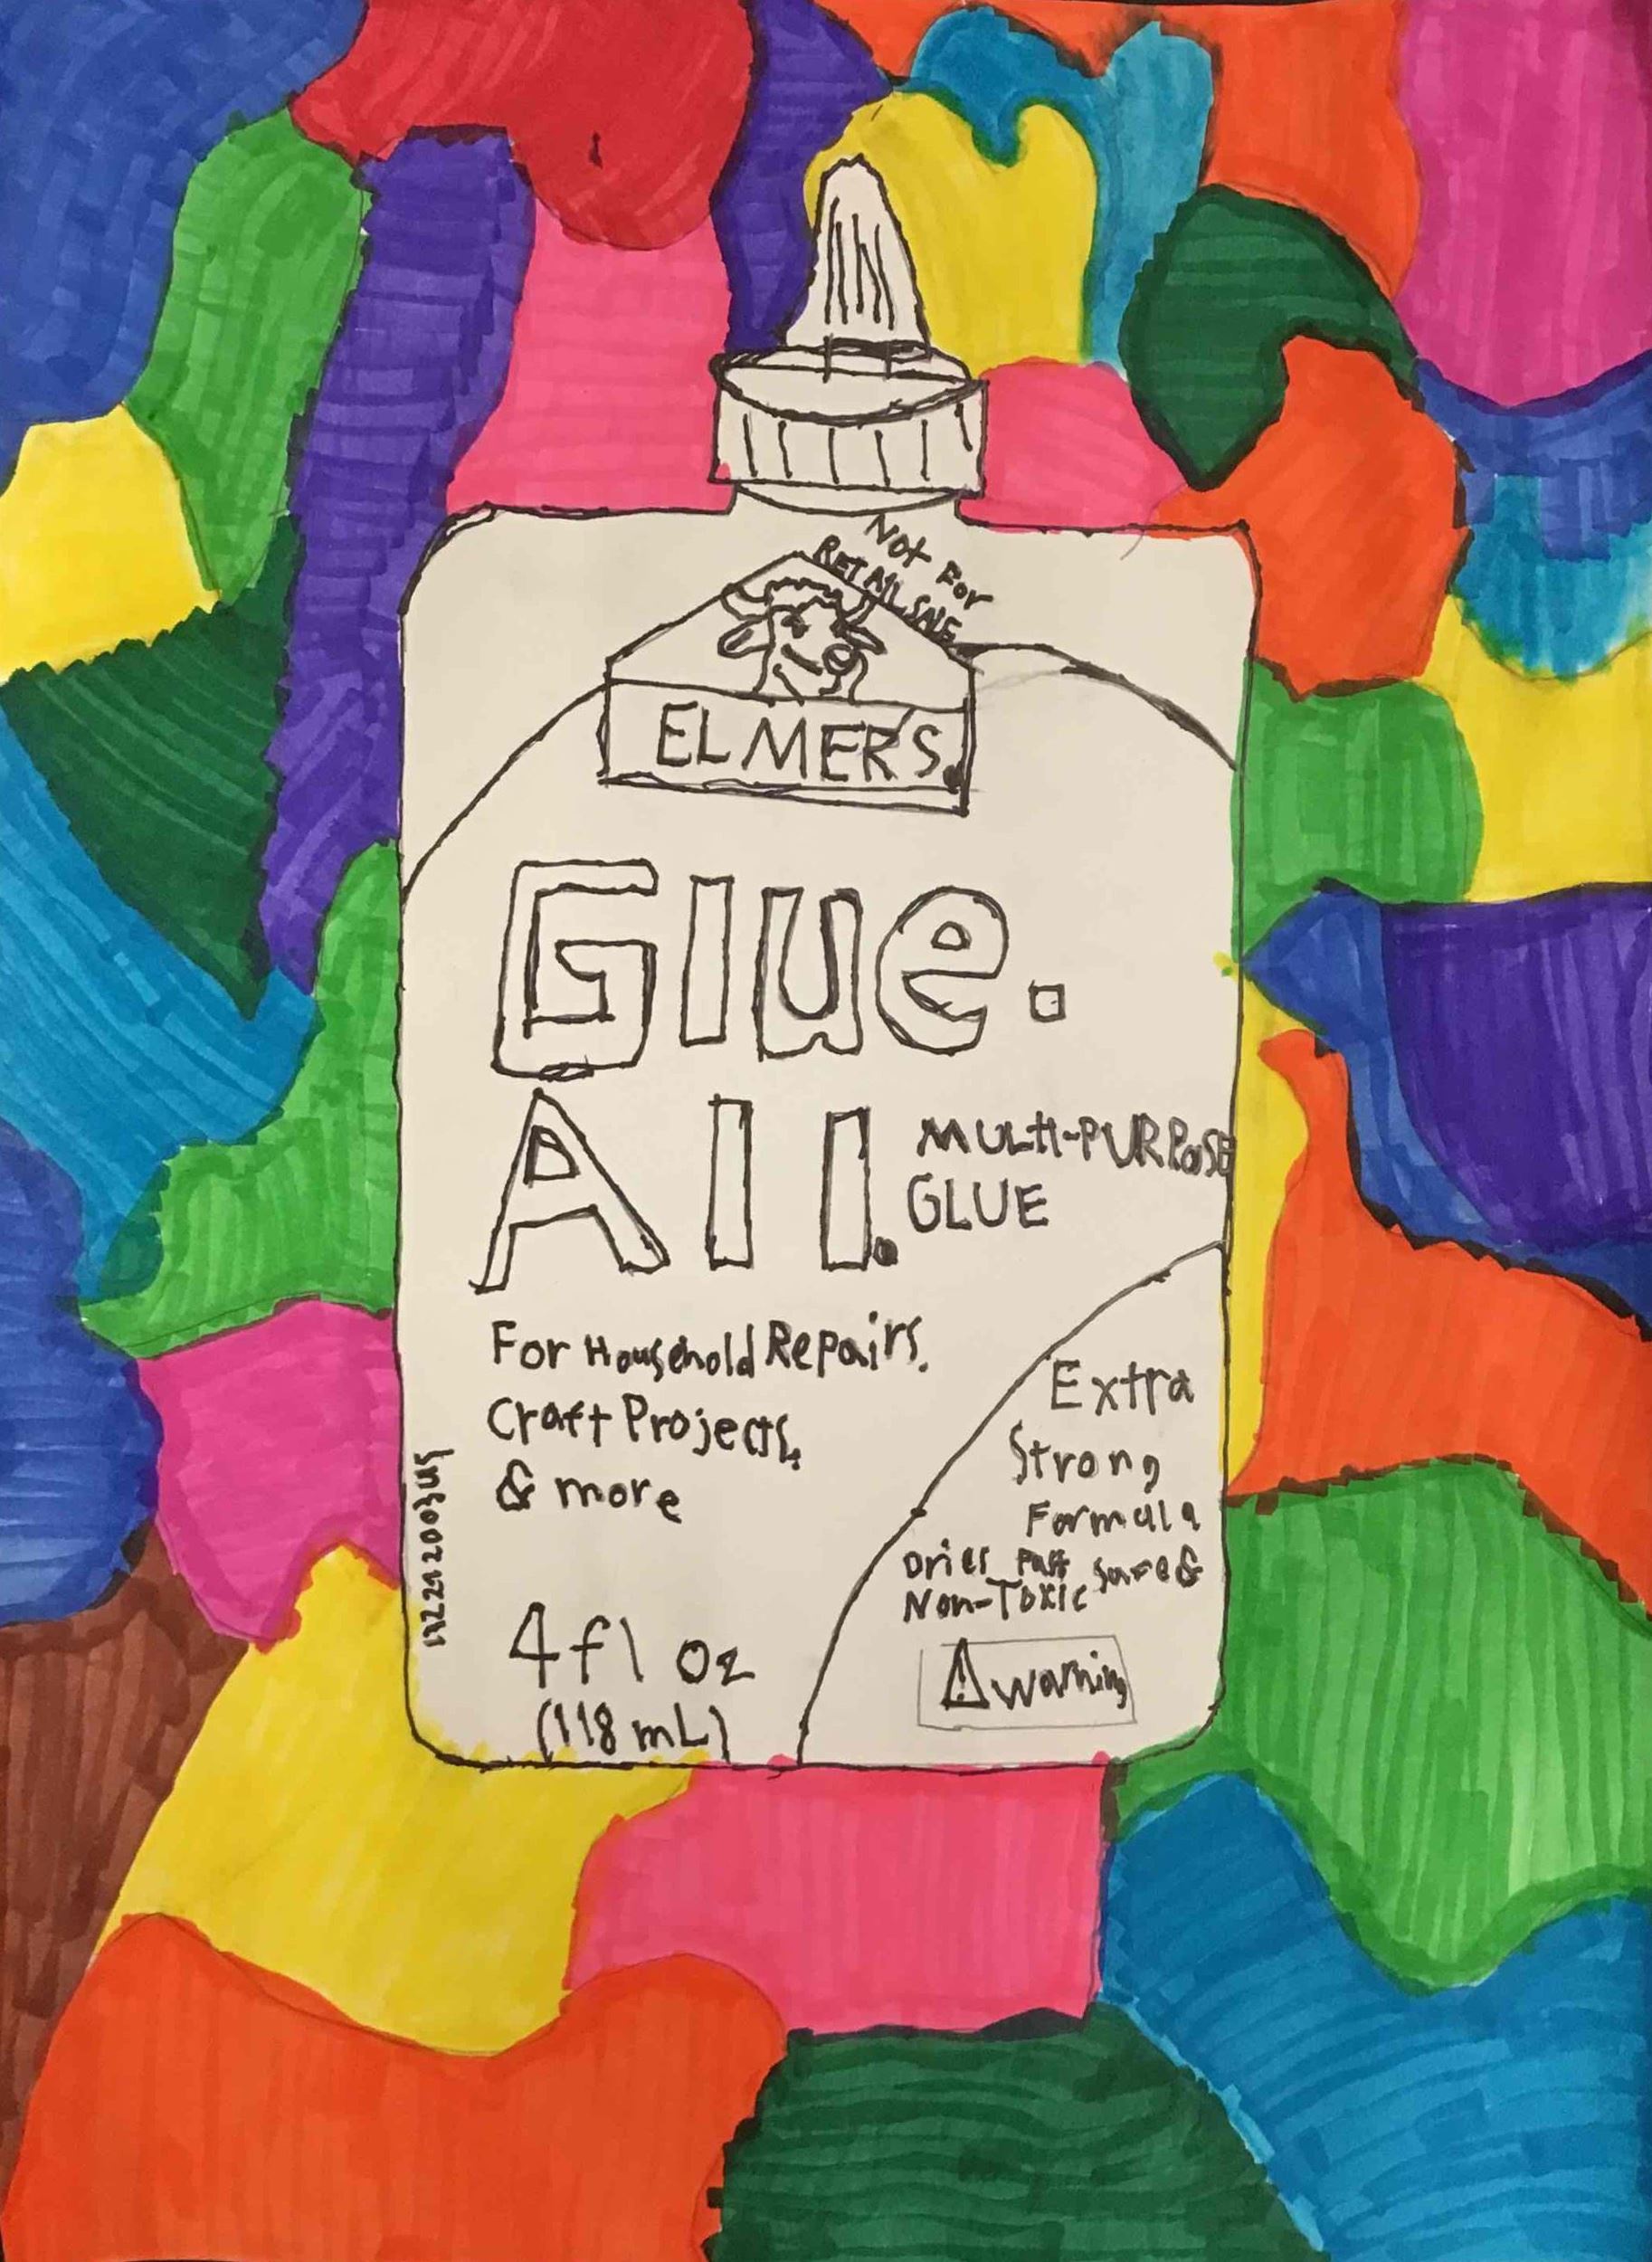 Not For
RETAIL SALE
ELMER'S.
Glue.
All.
MULTI-PURPOSE
GLUE
For Household Repairs.
Craft Projects,
& more
4 fl oz
(118 mL)
Extra
Strong
Formula
Dries Fast Safe &
Non-Toxic
⚠ warning